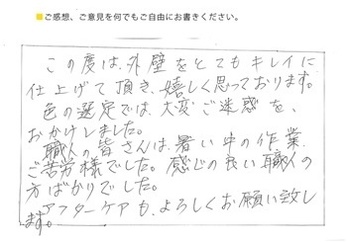 ■ご感想、ご意見を何でもご自由にお書きください。
この度は、外壁をとてもキレイに
仕上げて頂き、嬉しく思っております。
色の選定では、大変ご迷惑を、
おかけしました。
職人の皆さんは、暑い中の作業、
ご苦労様でした。感じの良い職人の
方ばかりでした。
アフターケアも、よろしくお願い致し
ます。